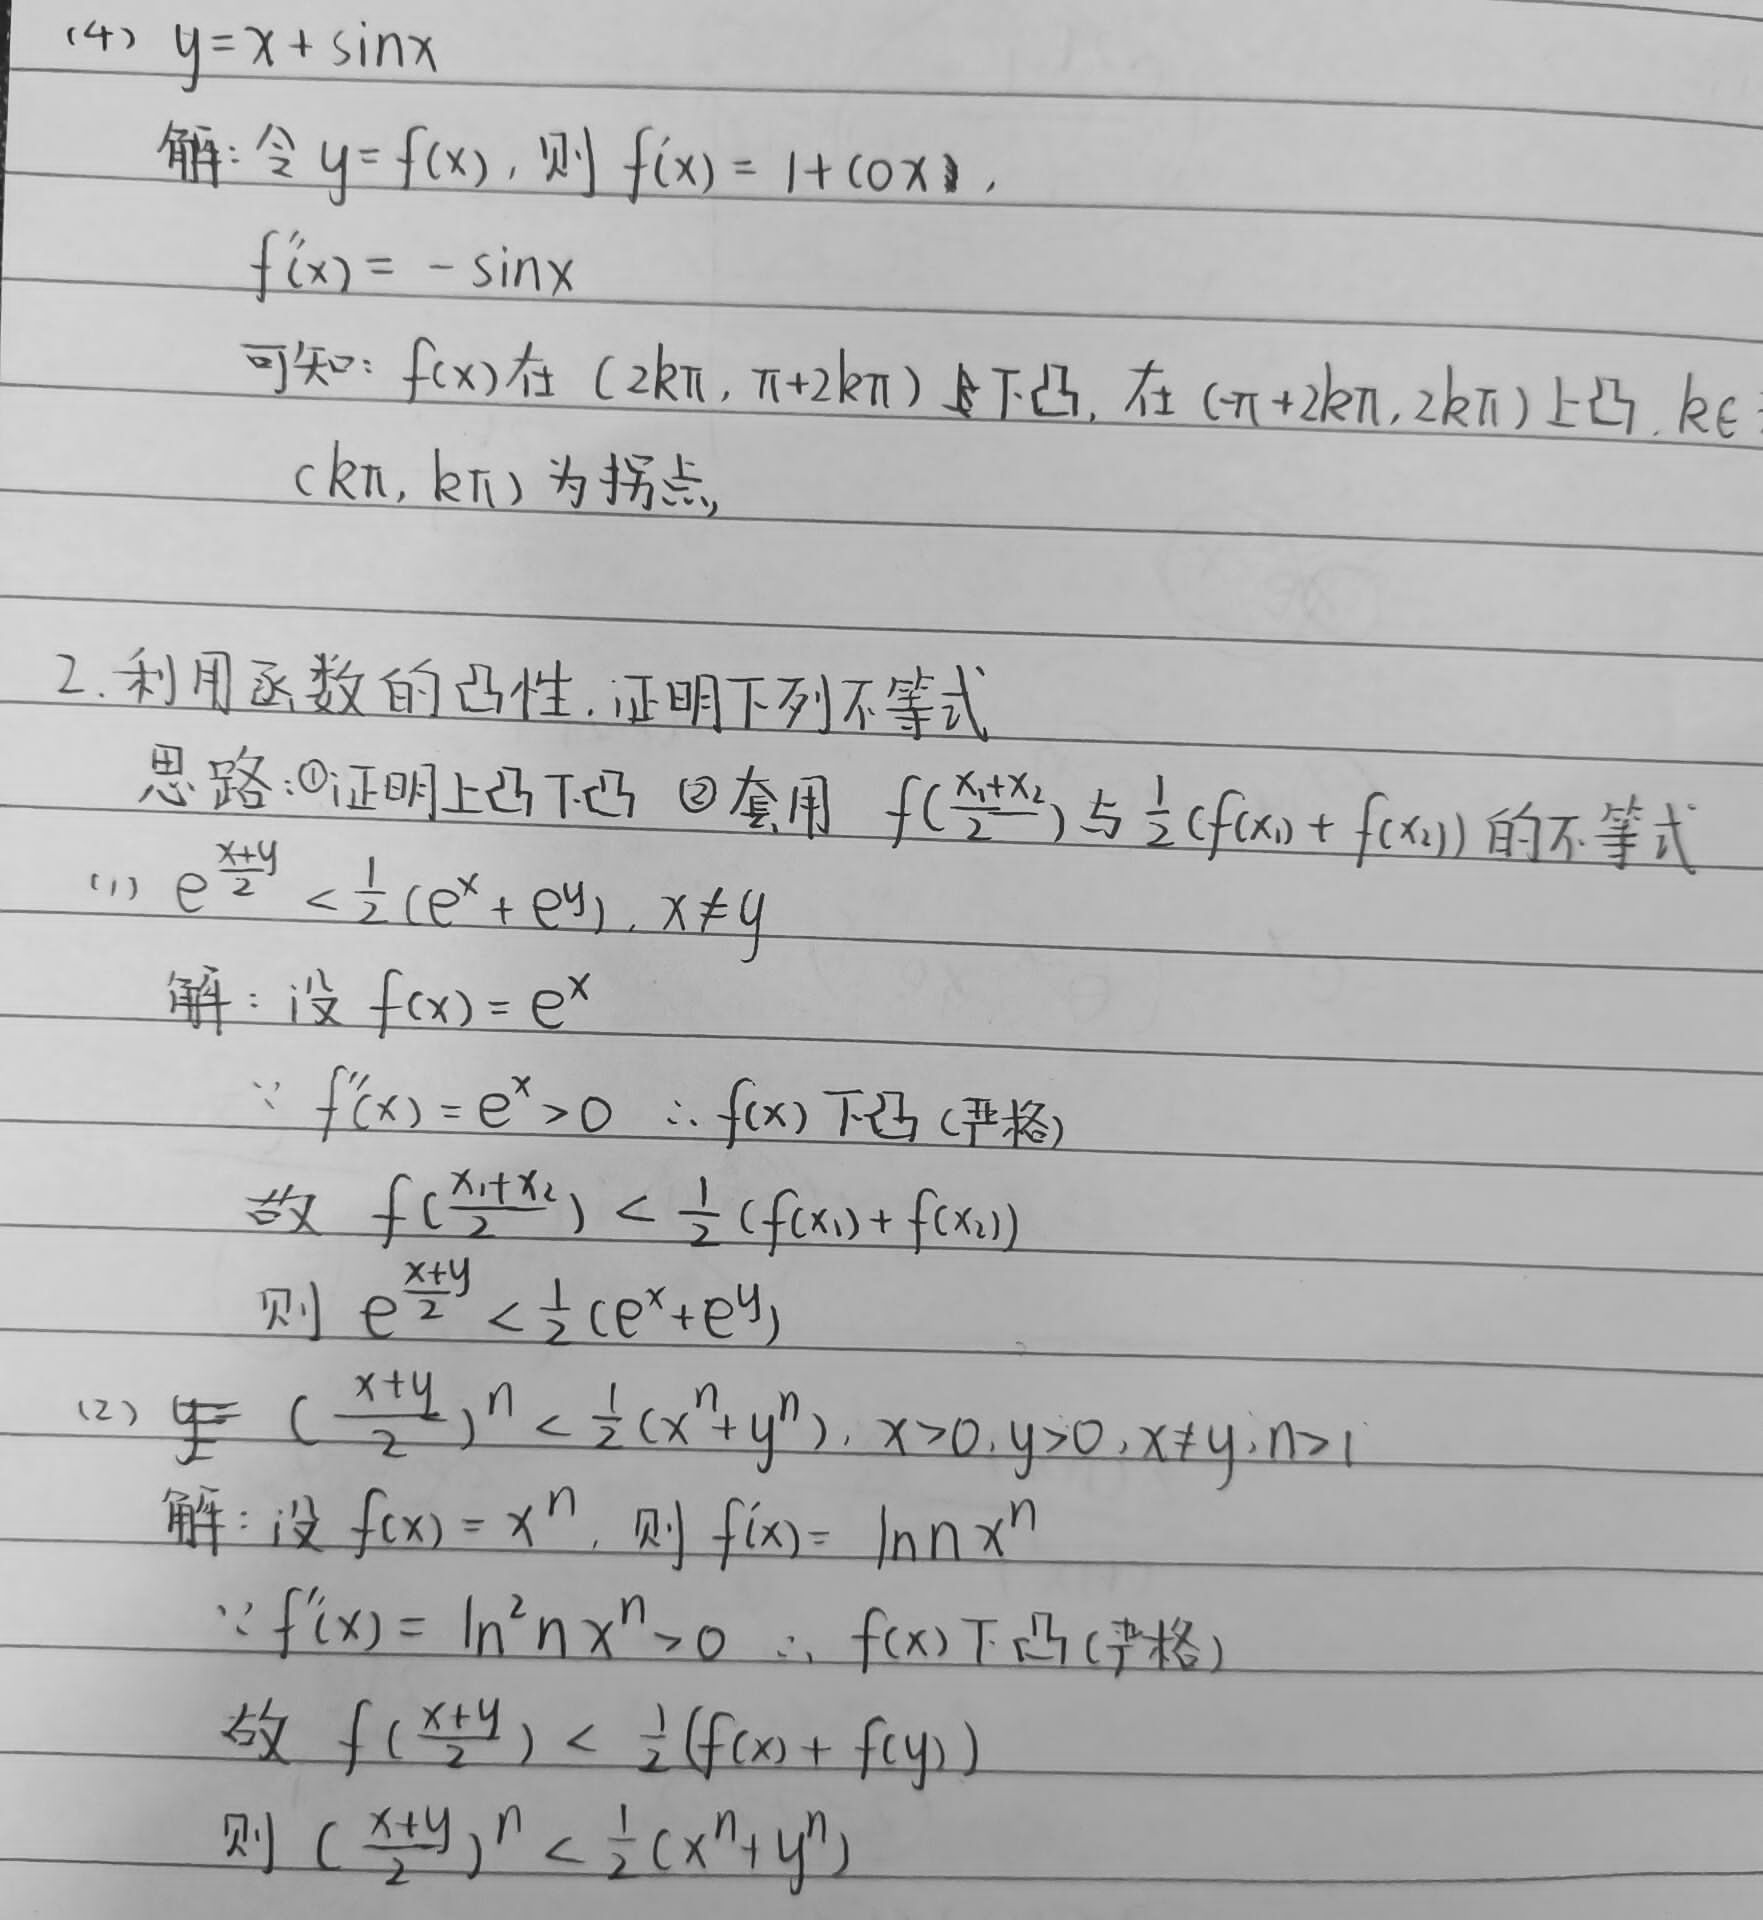 (4) y=x+sinx
解:令y=f(x),则f'(x)=1+cox,
f''(x)=-sinx
可知:f(x)在(2kπ,π+2kπ)下凸,在(-π+2kπ,2kπ)上凸.k∈
(kπ,kπ)为拐点,
2.利用函数的凸性.证明下列不等式
思路:①证明上凸下凸 ②套用 f((x₁+x₂)/2)与1/2(f(x₁)+f(x₂))的不等式
(1) e^((x+y)/2)<1/2(e^x+e^y),x≠y
解:设f(x)=e^x
∵f''(x)=e^x>0 ∴f(x)下凸(严格)
故 f((x₁+x₂)/2)<1/2(f(x₁)+f(x₂))
则 e^((x+y)/2)<1/2(e^x+e^y)
(2) ((x+y)/2)^n<1/2(x^n+y^n),x>0,y>0,x≠y,n>1
解:设f(x)=x^n,则f'(x)=lnnx^n
∵f''(x)=ln²nx^n>0 ∴f(x)下凸(严格)
故 f((x+y)/2)<1/2(f(x)+f(y))
则 ((x+y)/2)^n<1/2(x^n+y^n)